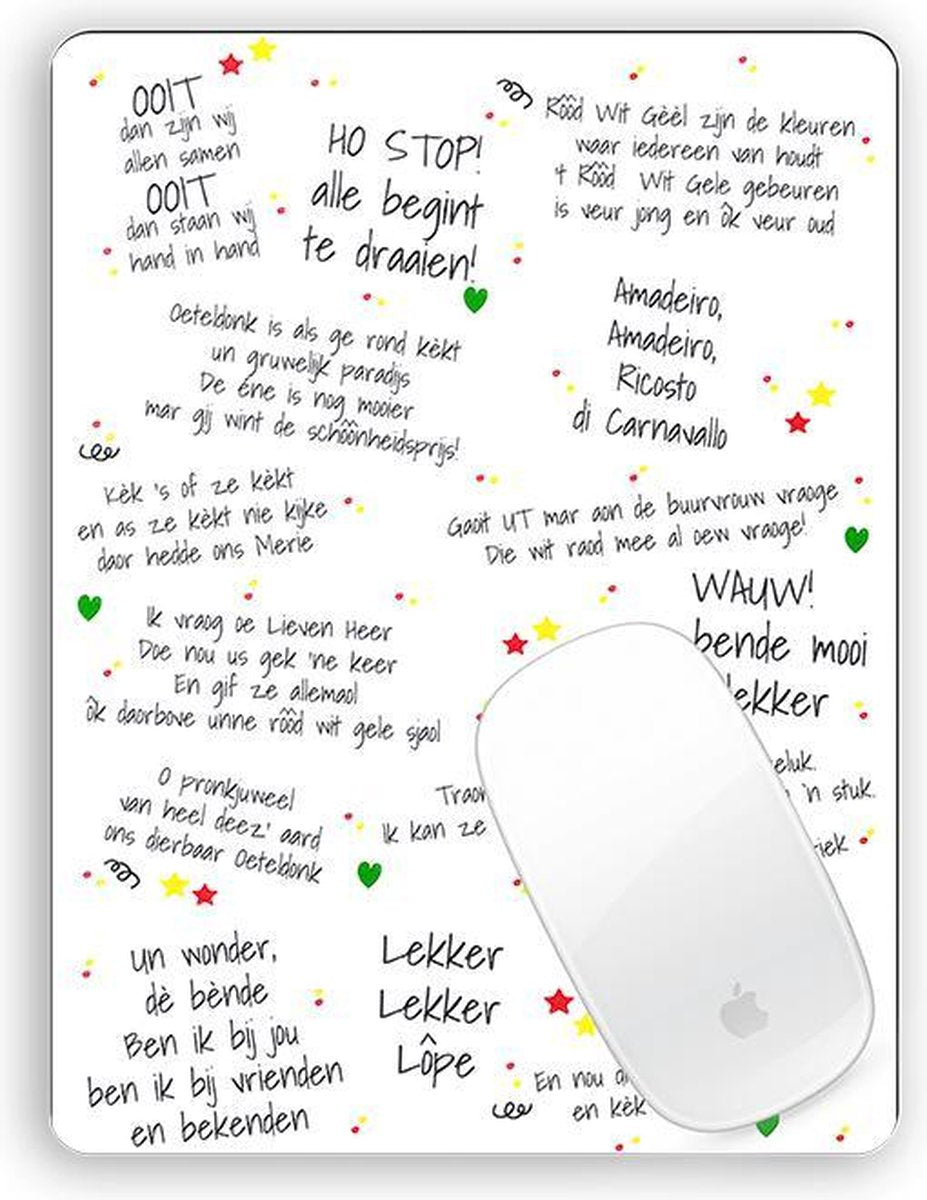 OOIT
dan zijn wij
allen samen
OOIT
dan staan wij
hand in hand
HO STOP!
alle begint
te draaien!
Rôôd Wit Gèèl zijn de kleuren
waar iedereen van houdt
't Rôôd Wit Gele gebeuren
is veur jong en ôk veur oud
Oeteldonk is als ge rond kèkt
un gruwelijk paradijs
De éne is nog mooier
mar gij wint de schôônheidsprijs!
Amadeiro,
Amadeiro,
Ricosto
di Carnavallo
Kèk 's of ze kèkt
en as ze kèkt nie kijke
daor hedde ons Merie
Gaoit UT mar aon de buurvrouw vraoge
Die wit raod mee al oew vraoge!
WAUW!
bende mooi
lekker
Ik vraog oe Lieven Heer
Doe nou us gek 'ne keer
En gif ze allemaol
ôk daorbove unne rôôd wit gele sjaol
O pronkjuweel
van heel deez' aard
ons dierbaar Oeteldonk
Ik kan ze
'n stuk.
Un wonder,
dè bènde
Ben ik bij jou
ben ik bij vrienden
en bekenden
Lekker
Lekker
Lôpe
En nou
en kèk